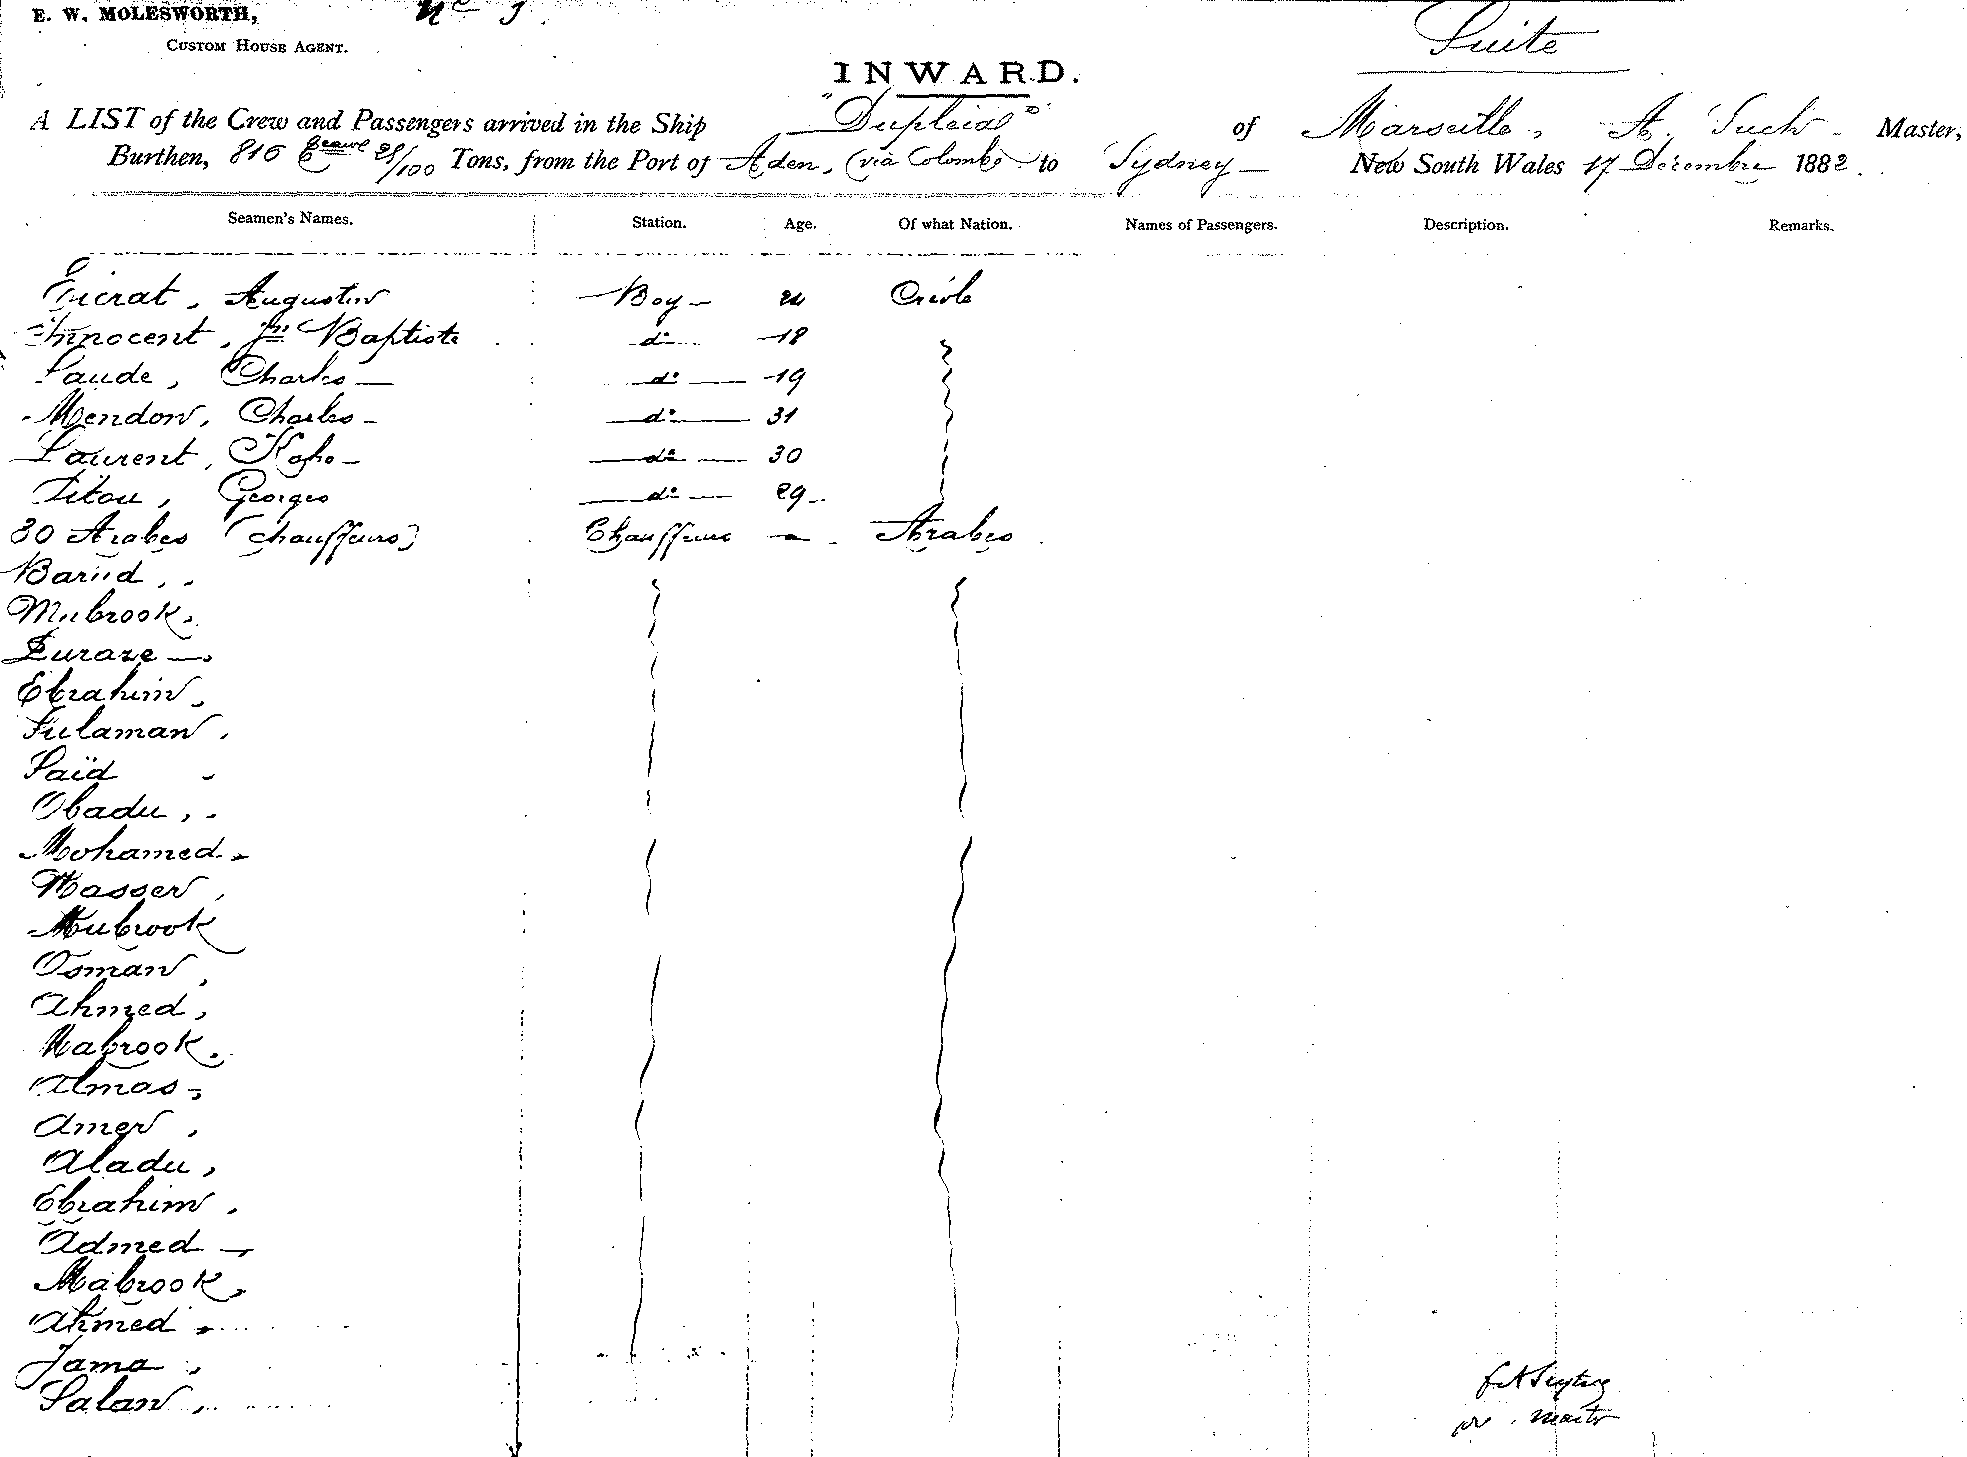 E. W. MOLESWORTH, No 3.
CUSTOM HOUSE AGENT.
Suite
INWARD.
A LIST of the Crew and Passengers arrived in the Ship "Dupleix" of Marseille, A. Such Master,
Burthen, 816 28/100 Tons, from the Port of Aden, (via Colombo to Sydney New South Wales 17 Décembre 1882.
Seamen's Names. Station. Age. Of what Nation. Names of Passengers. Description. Remarks.
Augustin Boy Créole
Innocent, Jn Baptiste do 18
Laude, Charles do 19
Mendow, Charles do 31
Laurent, do 30
Titou, Georges do 29
30 Arabes (chauffeurs) Chauffeurs Arabes
Mubrook
Ebrahim
Sulaman
Saïd
Obadu
Mohamed
Nasser
Mubrook
Osman
Ahmed
Mabrook
Almas
Amer
Aladu
Ebrahim
Admed
Mabrook
Ahmed
Jama
Salan